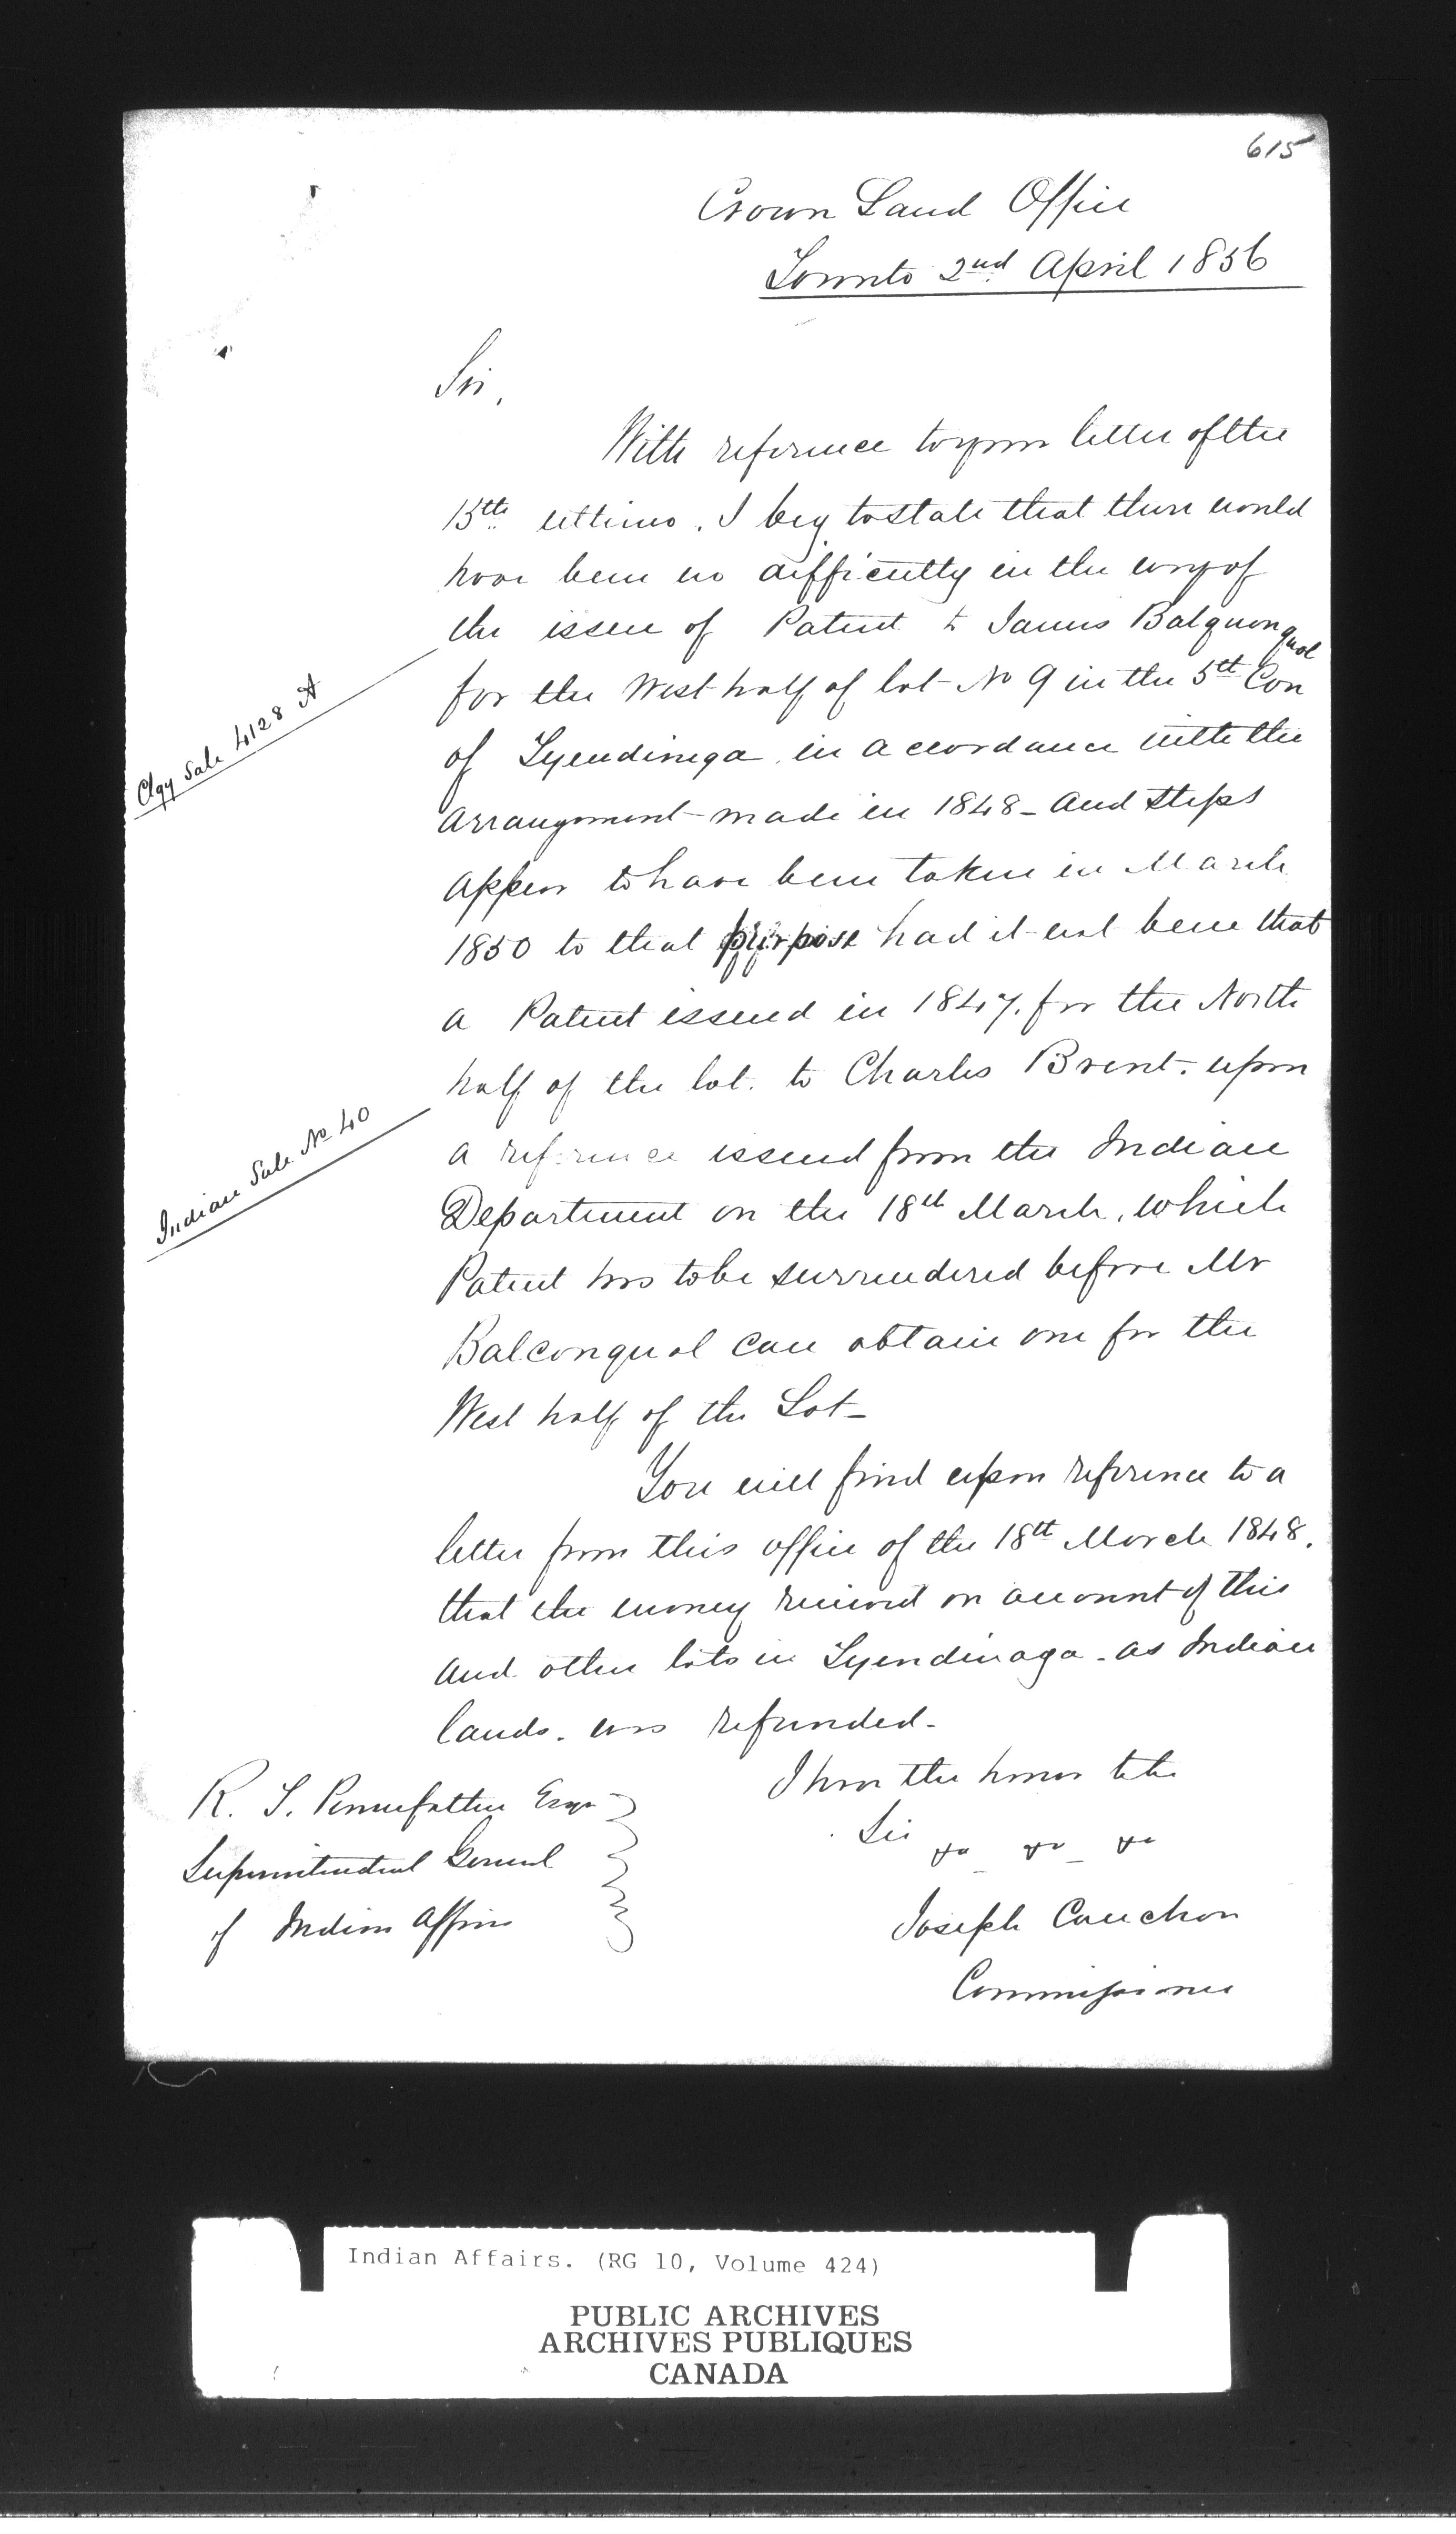 615
Crown Land Office
Toronto 2nd April 1856
Sir,
With reference to your letter of the
15th ultimo. I beg to state that there would
have been no difficulty in the way of
the issue of Patent to James Balquonqual
for the West half of lot No 9 in the 5th Con
Clgy Sale 4128 A
of Tyendinega in accordance with the
arrangement made in 1848 - and steps
appear to have been taken in March
1850 to that purpose had it not been that
a Patent issued in 1847. for the North
half of the lot. to Charles Brent - upon
Indian Sale No 40
a reference issued from the Indian
Department on the 18th March, which
Patent has to be surrendered before Mr
Balconqual can obtain one for the
West half of the Lot -
You will find upon reference to a
letter from this office of the 18th March 1848.
that the money received on account of this
and other lots in Tyendinaga - as Indian
lands. was refunded -
I have the honor to be
Sir &c &c &c
Joseph Cauchon
Commissioner
R. T. Pennefather Esqr
Superintendent General
of Indian Affairs
Indian Affairs. (RG 10, Volume 424)
PUBLIC ARCHIVES
ARCHIVES PUBLIQUES
CANADA